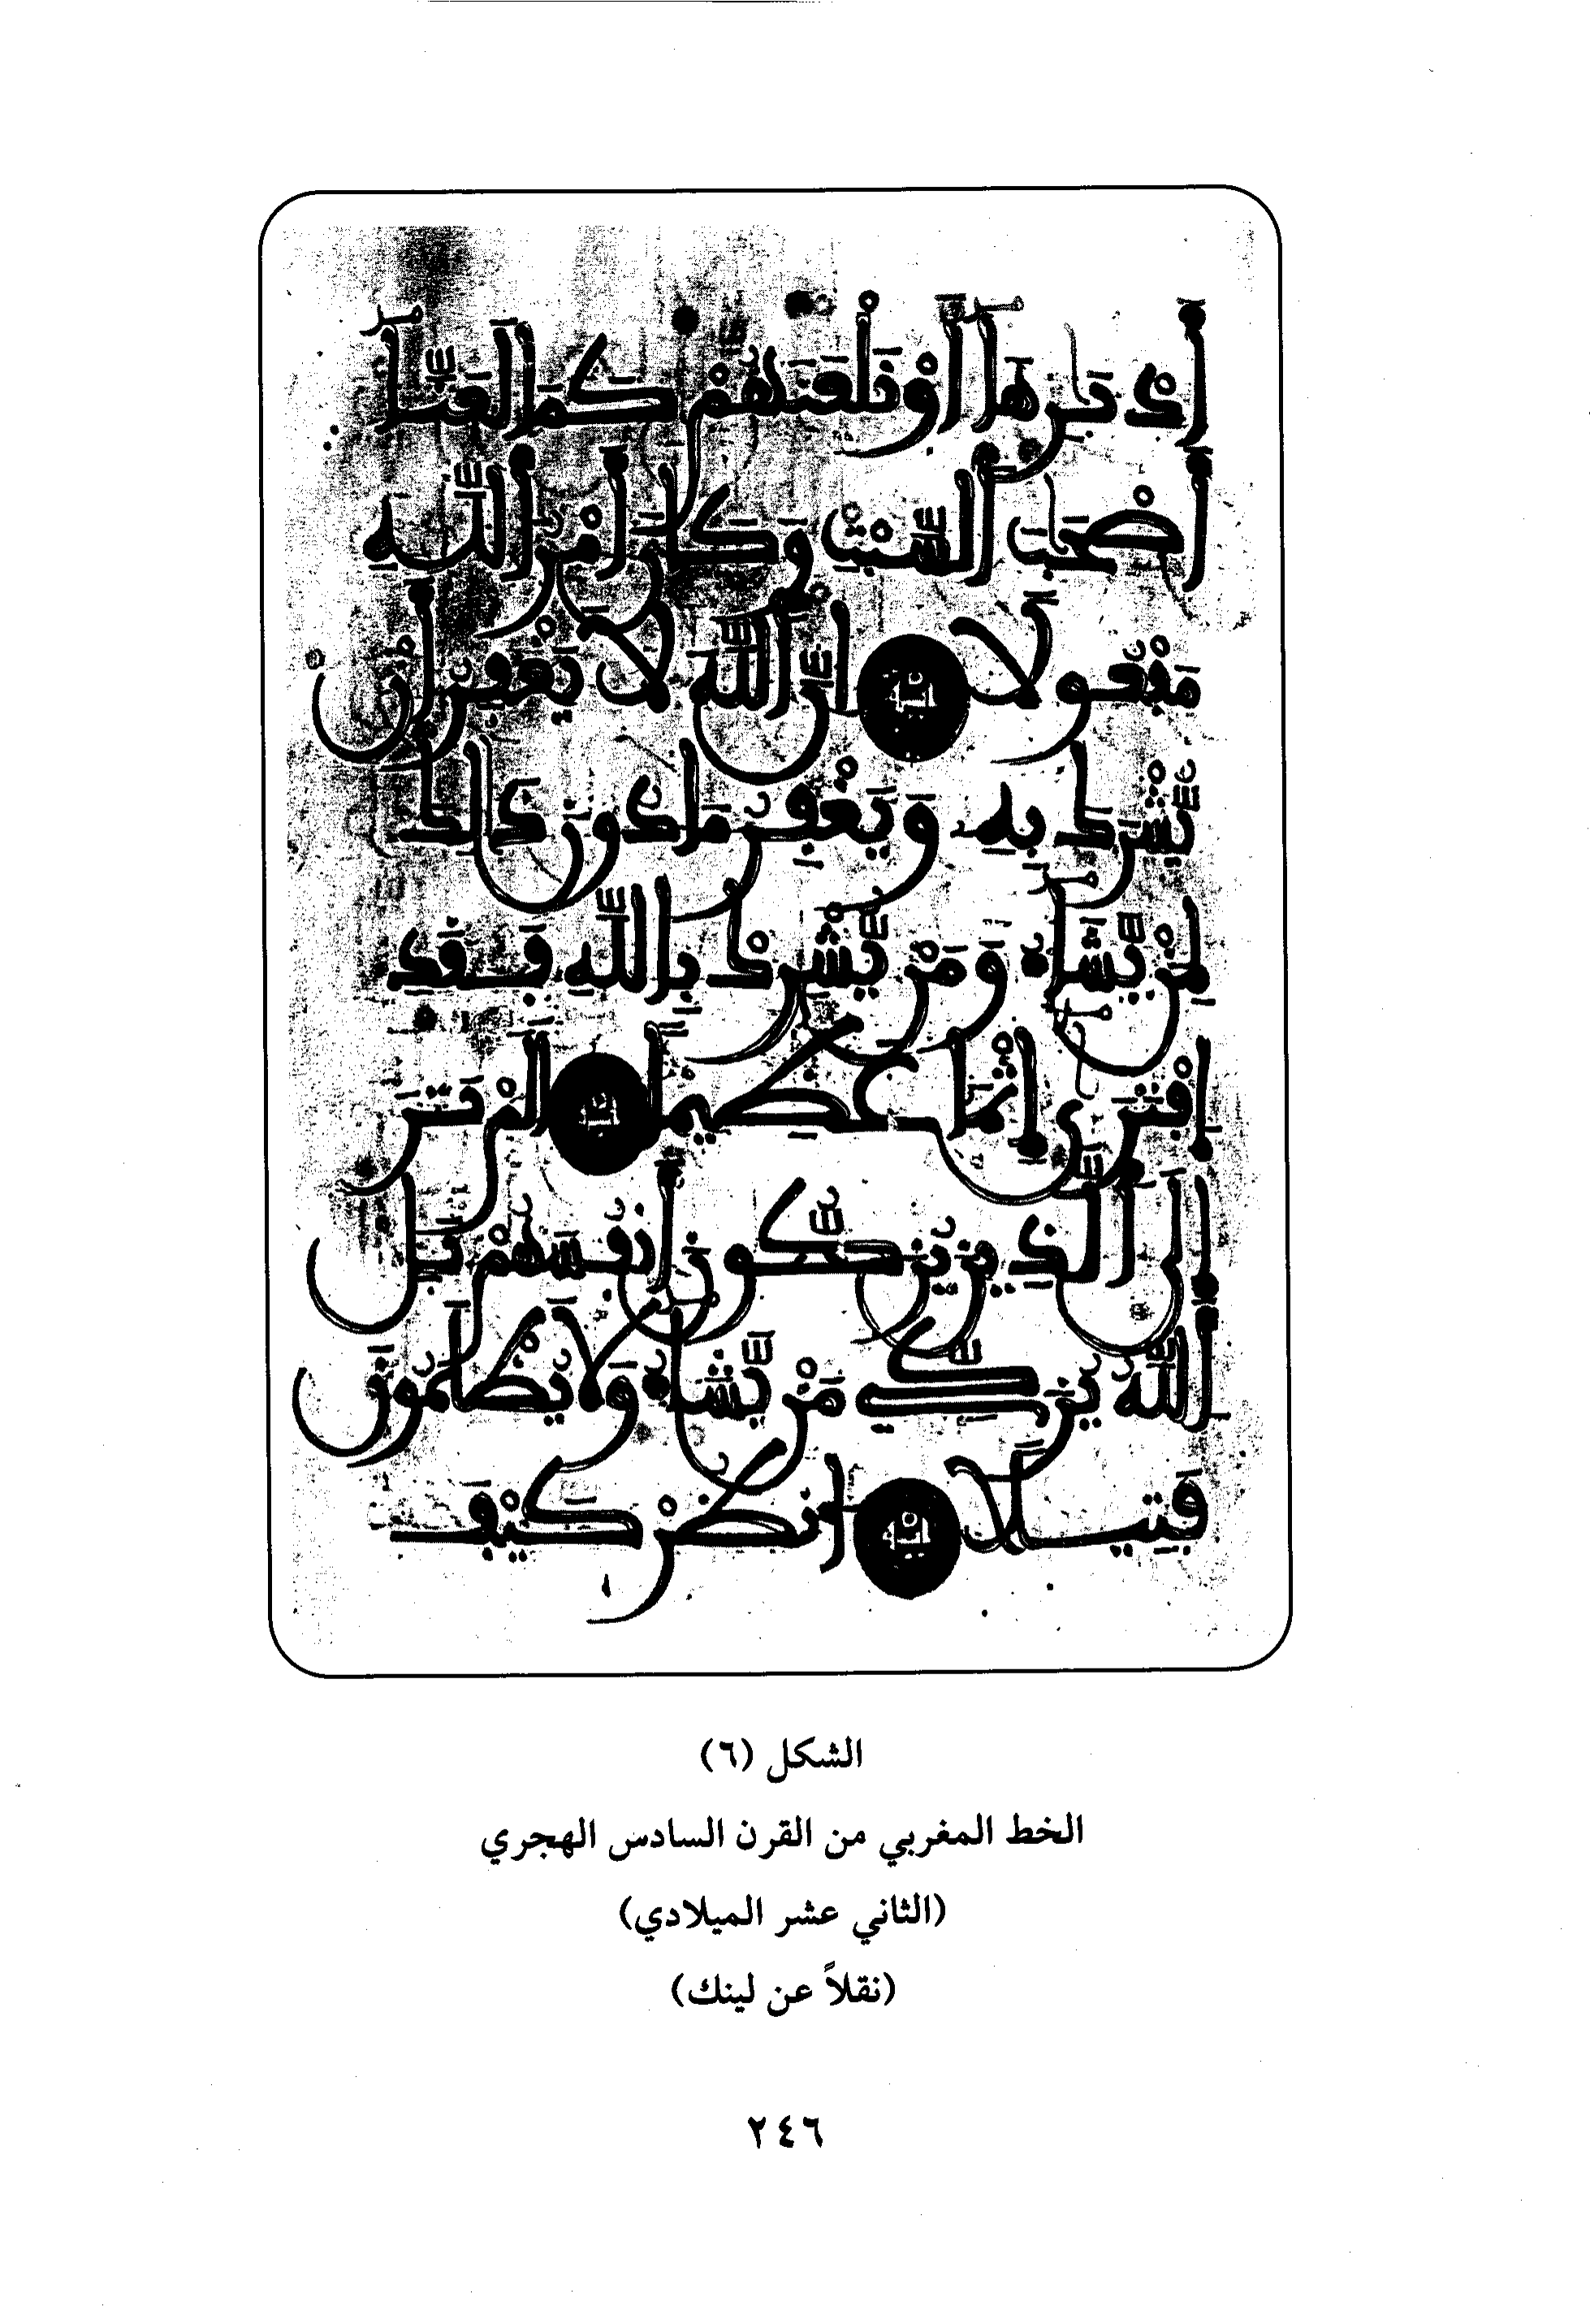 أَدْبَرِهَا أَوْ نَلْعَنَهُمْ كَمَا لَعَنَّا
أَصْحَبَ السَّبْتِ وَكَانَ أَمْرُ اللَّهِ
مَفْعُولًا إِنَّ اللَّهَ لَا يَغْفِرُ أَنْ
يُّشْرَكَ بِهِ وَيَغْفِرُ مَا دُونَ ذَلِكَ
لِمَنْ يَّشَآءُ وَمَنْ يُّشْرِكْ بِاللَّهِ فَقَدِ
اِفْتَرَى إِثْمًا عَظِيمًا أَلَمْ تَرَ
إِلَى الَّذِينَ يُزَكُّونَ أَنْفُسَهُمْ بَلِ
اللَّهُ يُزَكِّي مَنْ يَّشَآءُ وَلَا يُظْلَمُونَ
فَتِيلًا اُنْظُرْ كَيْفَ
الشكل (٦)
الخط المغربي من القرن السادس الهجري
(الثاني عشر الميلادي)
(نقلاً عن لينك)
٢٤٦